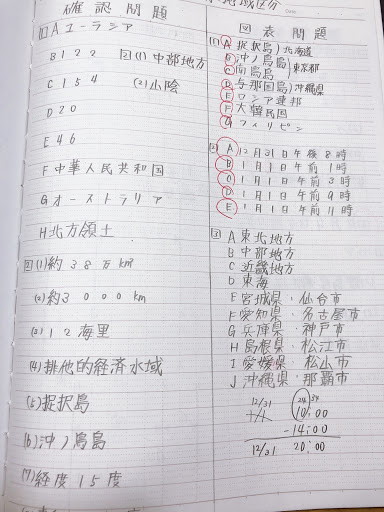 地域区分
Date
確認問題
1 A ユーラシア
B 122
C 154
D 20
E 46
F 中華人民共和国
G オーストラリア
H 北方領土
2 (1) 中部地方
(2) 山陰
2 (1) 約38万km²
(2) 約3000km
(3) 12海里
(4) 排他的経済水域
(5) 択捉島
(6) 沖ノ鳥島
(7) 経度15度
図表問題
(1) A 択捉島) 北海道
B 沖ノ鳥島) 東京都
C 南鳥島
D 与那国島) 沖縄県
E ロシア連邦
F 大韓民国
G フィリピン
(2) A 12月31日午後8時
B 1月1日午前1時
C 1月1日午前3時
D 1月1日午前9時
E 1月1日午前11時
3 A 東北地方
B 中部地方
C 近畿地方
D 東海
E 宮城県・仙台市
F 愛知県・名古屋市
G 兵庫県・神戸市
H 島根県・松江市
I 愛媛県・松山市
J 沖縄県・那覇市
12/31 24 34
1/1 10:00
-14:00
12/31 20:00